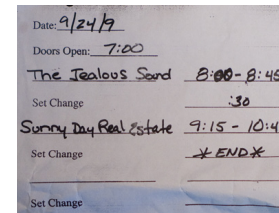 Date: 9/24/9
Doors Open: 7:00
The Jealous Sound 8:00 - 8:45
Set Change :30
Sunny Day Real Estate 9:15 - 10:4
Set Change * END *
Set Change